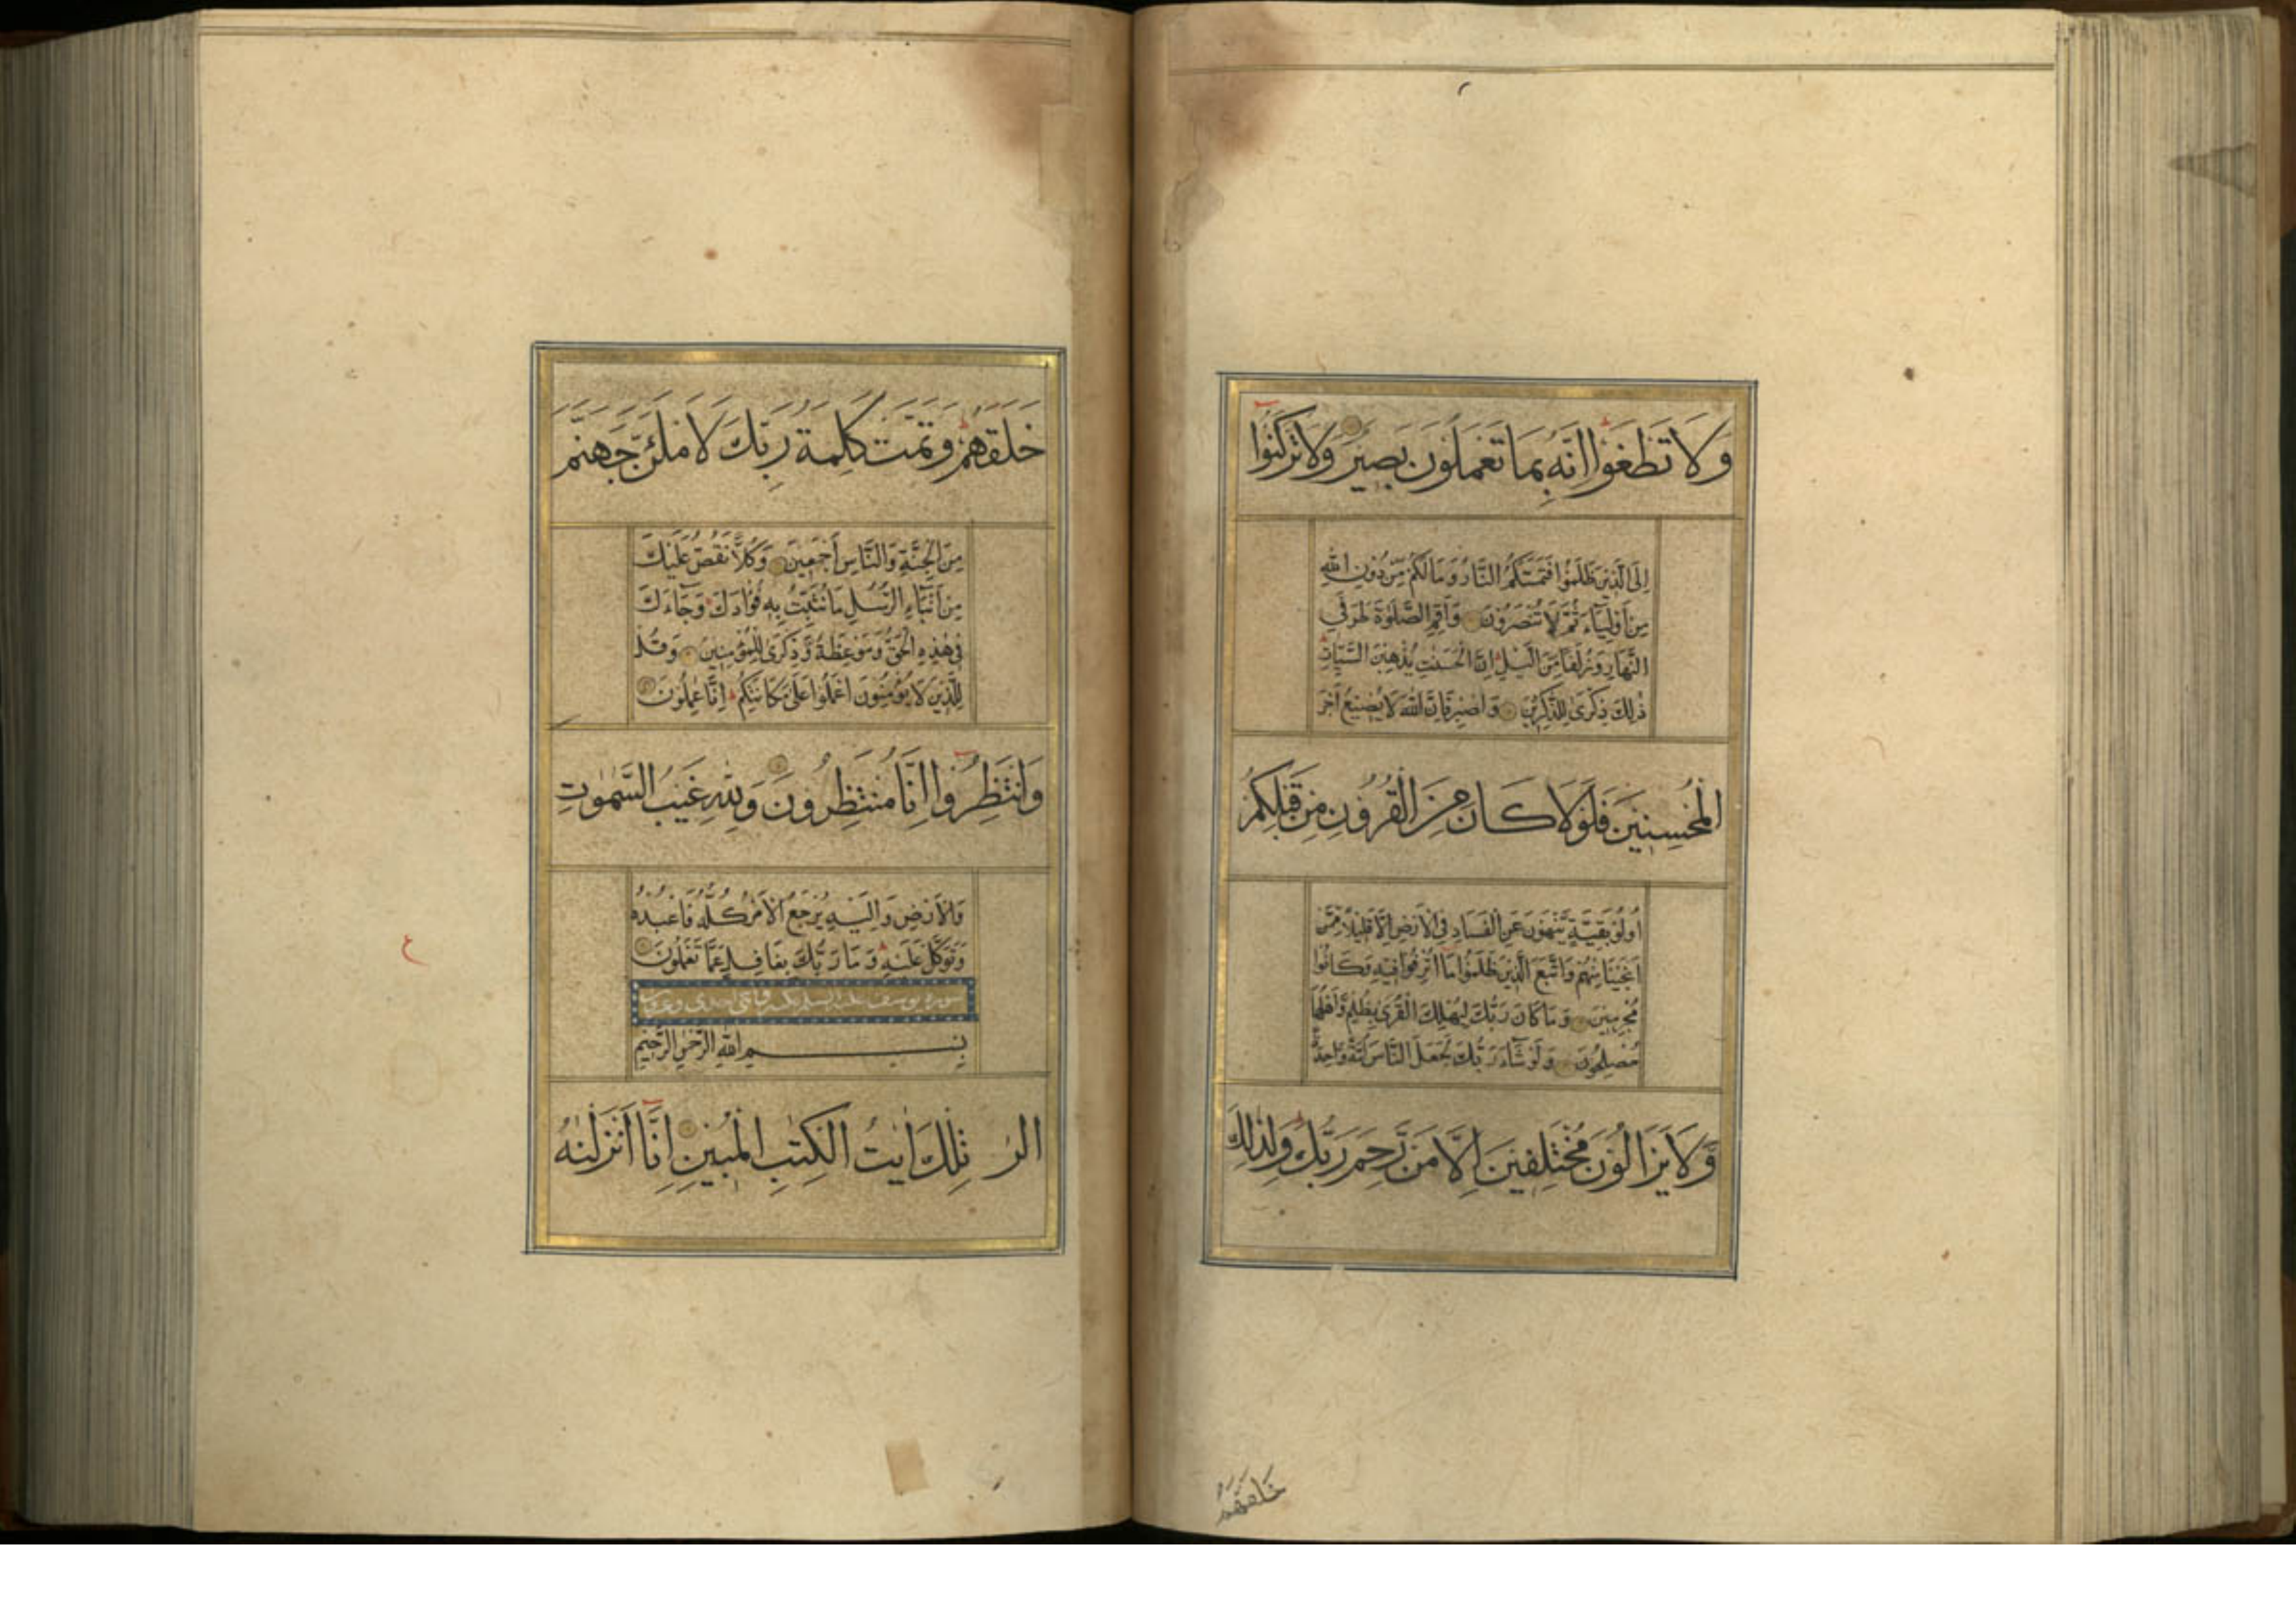 وَلَا تَطْغَوْا اِنَّهُ بِمَا تَعْمَلُونَ بَصِيرٌ وَلَا تَرْكَنُوا
اِلَى الَّذِينَ ظَلَمُوا فَتَمَسَّكُمُ النَّارُ وَمَا لَكُمْ مِّنْ دُونِ اللّٰهِ
مِنْ اَوْلِيَاءَ ثُمَّ لَا تُنْصَرُونَ وَاَقِمِ الصَّلٰوةَ طَرَفَيِ
النَّهَارِ وَزُلَفًا مِّنَ الَّيْلِ اِنَّ الْحَسَنٰتِ يُذْهِبْنَ السَّيِّاٰتِ
ذٰلِكَ ذِكْرٰى لِلذّٰكِرِينَ وَاصْبِرْ فَاِنَّ اللّٰهَ لَا يُضِيعُ اَجْرَ
الْمُحْسِنِينَ فَلَوْلَا كَانَ مِنَ الْقُرُونِ مِنْ قَبْلِكُمْ
اُولُوا بَقِيَّةٍ يَّنْهَوْنَ عَنِ الْفَسَادِ فِى الْاَرْضِ اِلَّا قَلِيلًا مِّمَّنْ
اَنْجَيْنَا مِنْهُمْ وَاتَّبَعَ الَّذِينَ ظَلَمُوا مَا اُتْرِفُوا فِيهِ وَكَانُوا
مُجْرِمِينَ وَمَا كَانَ رَبُّكَ لِيُهْلِكَ الْقُرٰى بِظُلْمٍ وَّاَهْلُهَا
مُصْلِحُونَ وَلَوْ شَاءَ رَبُّكَ لَجَعَلَ النَّاسَ اُمَّةً وَّاحِدَةً
وَّلَا يَزَالُونَ مُخْتَلِفِينَ اِلَّا مَنْ رَّحِمَ رَبُّكَ وَلِذٰلِكَ
خَلَقَهُمْ
خَلَقَهُمْ وَتَمَّتْ كَلِمَةُ رَبِّكَ لَاَمْلَئَنَّ جَهَنَّمَ
مِنَ الْجِنَّةِ وَالنَّاسِ اَجْمَعِينَ وَكُلًّا نَقُصُّ عَلَيْكَ
مِنْ اَنْبَاءِ الرُّسُلِ مَا نُثَبِّتُ بِهِ فُؤَادَكَ وَجَاءَكَ
فِى هٰذِهِ الْحَقُّ وَمَوْعِظَةٌ وَّذِكْرٰى لِلْمُؤْمِنِينَ وَقُلْ
لِلَّذِينَ لَا يُؤْمِنُونَ اعْمَلُوا عَلٰى مَكَانَتِكُمْ اِنَّا عٰمِلُونَ
وَانْتَظِرُوا اِنَّا مُنْتَظِرُونَ وَلِلّٰهِ غَيْبُ السَّمٰوٰتِ
وَالْاَرْضِ وَاِلَيْهِ يُرْجَعُ الْاَمْرُ كُلُّهُ فَاعْبُدْهُ
وَتَوَكَّلْ عَلَيْهِ وَمَا رَبُّكَ بِغَافِلٍ عَمَّا تَعْمَلُونَ
سورة يوسف
بِسْمِ اللّٰهِ الرَّحْمٰنِ الرَّحِيمِ
الر تِلْكَ اٰيٰتُ الْكِتٰبِ الْمُبِينِ اِنَّا اَنْزَلْنٰهُ
ع